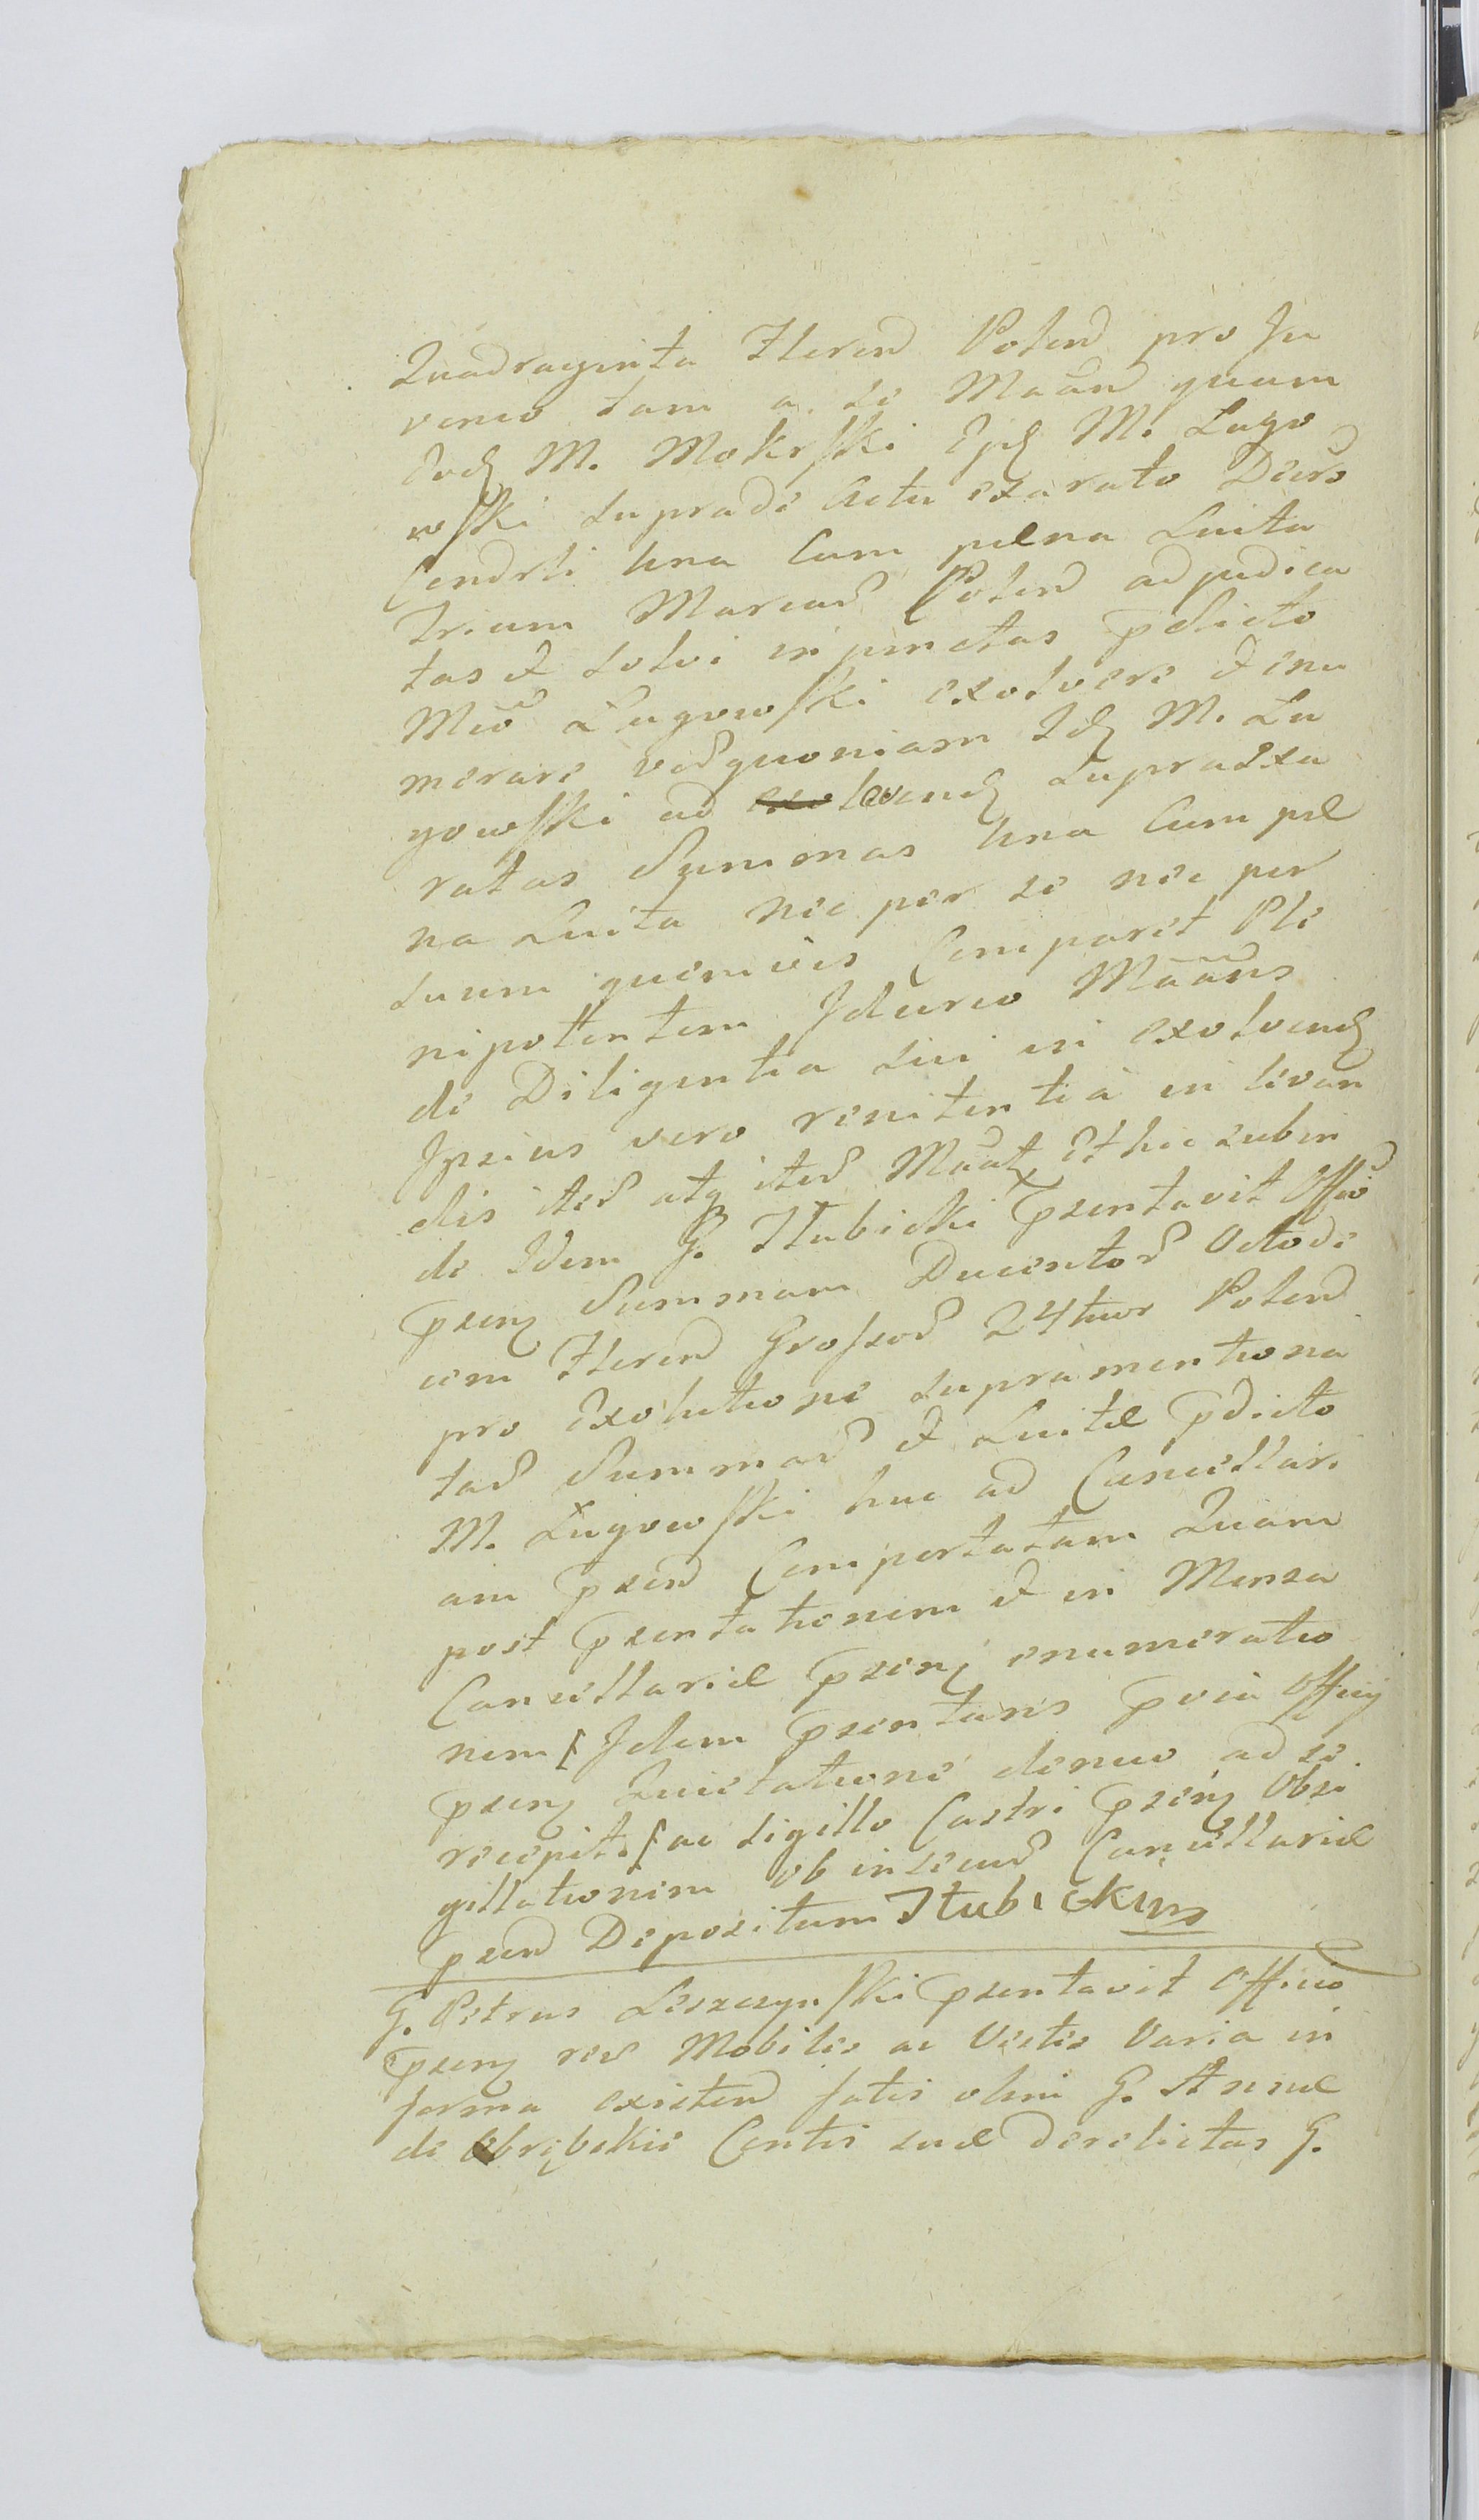 Quadraginta Fleren Polen pro Ju
venco tam a se Maan quam
M. Mokrski Epq M. Lugo
wski supra de Actu exarato Decro
Condrli una Cum pæna Luita
Trium Marcar Polen adjudica
tas et solvi injunctas pdicto
Mco Ługowski exolvere et enu
merare ver quoniam Idq M. Łu
gowski ad levendq supraexa
ratas Summas una Cum pæ
na Luita nec per se nec per
suum quemvis Comparet Ple
nipottentem Idcirco Maans
de Diligentia sui in exolvendq
Ipsius vero renitentia in levan
dis iter atq iter Maatq Et hic subin
de Idem G. Iłubicki psentavit Offio
psenq Summam Ducentor Octode
cem Fleren Grossor 24tuor Polen
pro Exolutione supramentiona
tar Summar et Luitæ pdicto
M. Ługowski huc ad Cancellari
am psen Comportatam Quam
post psentationem et in Mensa
Cancellariæ psenq enumeratio
nem Idem psentans pvia Officij
psenq Quietatione denuo ad se
recepit ac sigillo Castri psenq Obsi
gillationem ob insecur Cancellariæ
psen Depositum Iłubicki mp
G. Petrus Leszczynski psentavit Officio
psenq res Mobiles ac Vestes Varia in
forma existen fatis olim G. Annæ
de Obrębskie Contis suæ derelictas G.